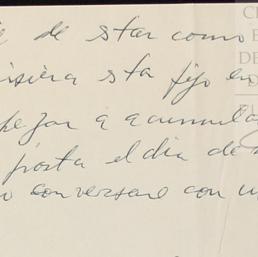 de star como
isiera sta fijo en
pezar a acumula
posta el dia de
conversare con u